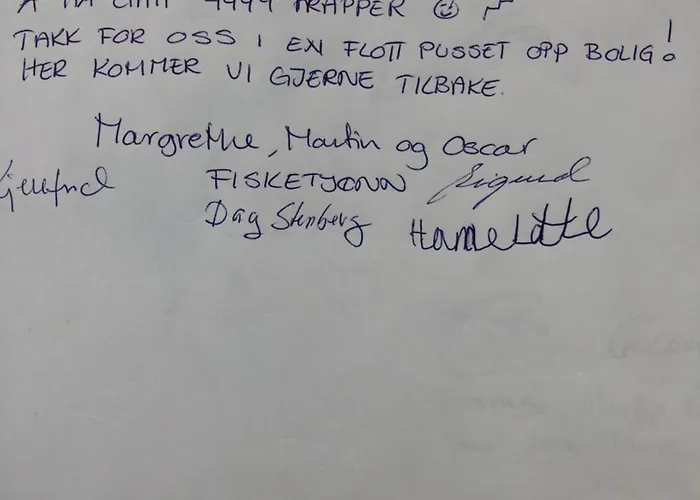 4444 TRAPPER ☺
TAKK FOR OSS I EN FLOTT PUSSET OPP BOLIG!
HER KOMMER VI GJERNE TILBAKE.
Margrethe, Martin og Oscar
FISKETJØNN Sigurd
Dag Stenberg Hanne Lotte